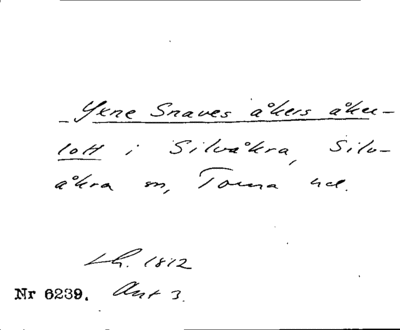 Yxne Snaves åkers åker-
lott i Silvåkra, Silv-
åkra sn, Torna hd.
Lh. 1812
Nr 6239. Akt 3.